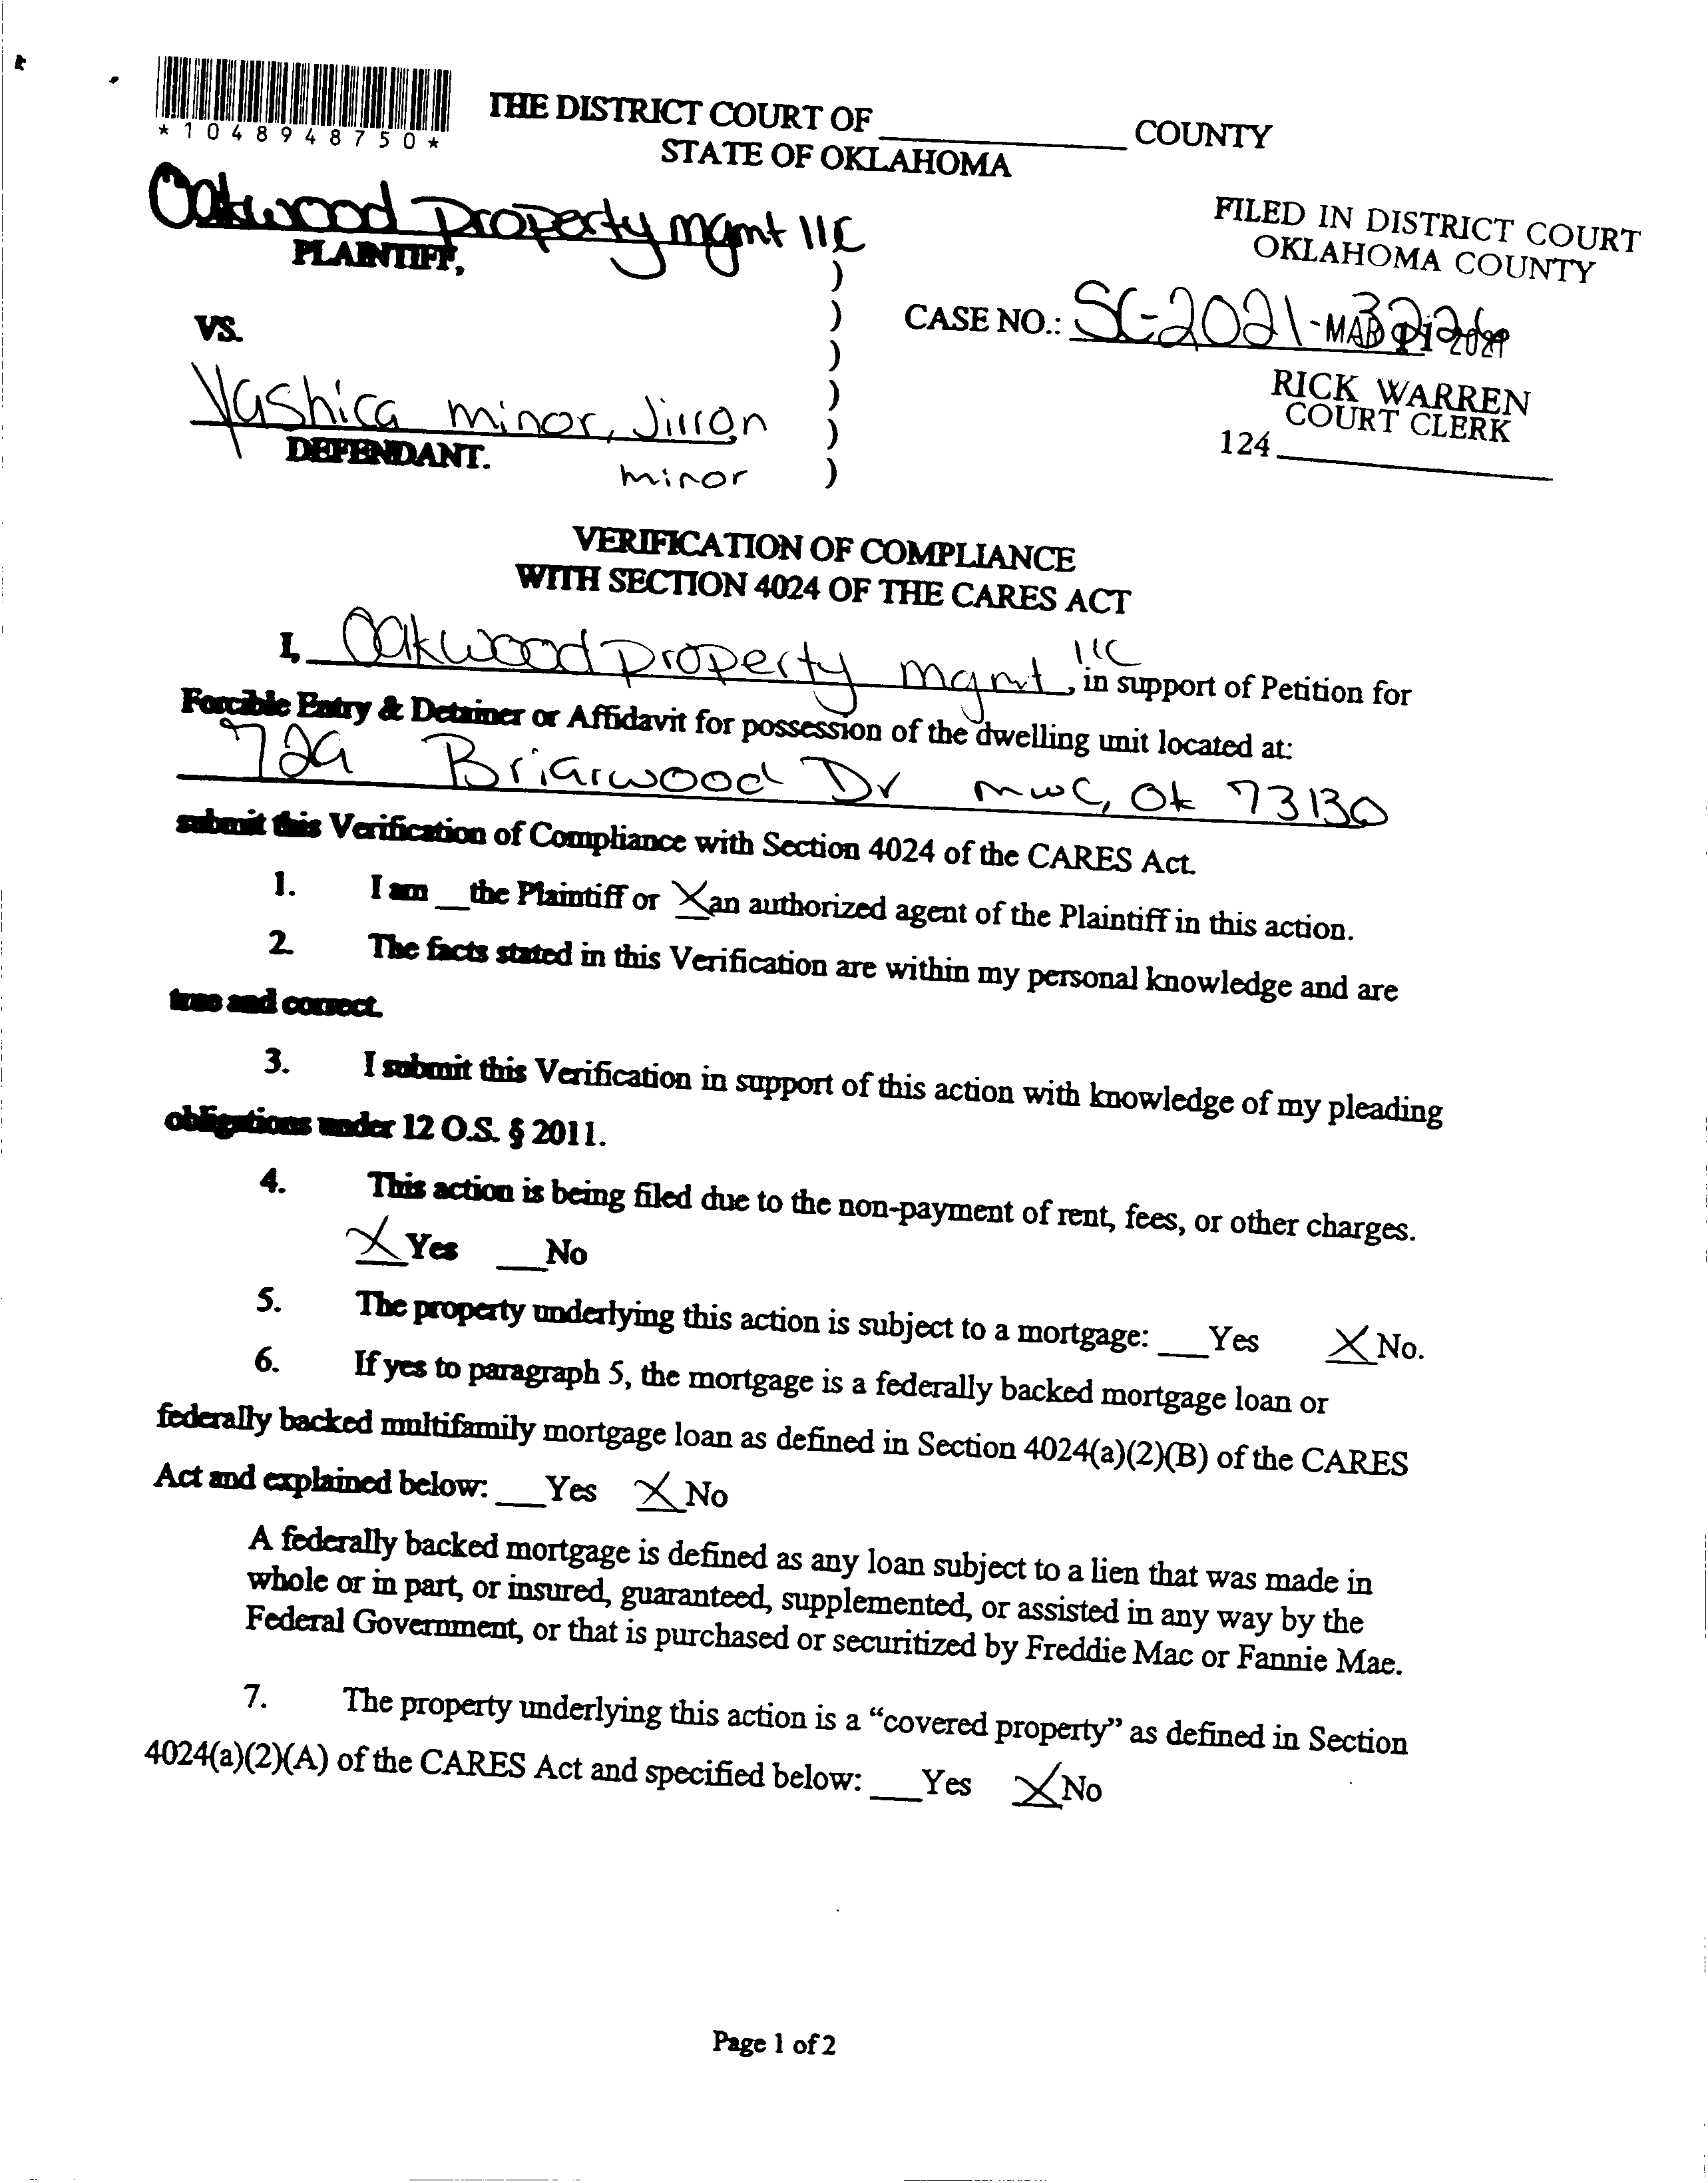 *1048948750*
THE DISTRICT COURT OF ____ COUNTY
STATE OF OKLAHOMA
Oakwood property mgmt llc
PLAINTIFF,
)
FILED IN DISTRICT COURT
OKLAHOMA COUNTY
VS.
)
CASE NO.: SC-2021-
MAR 2021
)
)
Yashica minor,
)
DEFENDANT.
minor
)
RICK WARREN
COURT CLERK
124 ____
VERIFICATION OF COMPLIANCE
WITH SECTION 4024 OF THE CARES ACT
I, Oakwood property mgmt llc, in support of Petition for
Forcible Entry & Detainer or Affidavit for possession of the dwelling unit located at:
729 Briarwood Dr mwc, Ok 73130
submit this Verification of Compliance with Section 4024 of the CARES Act.
1. I am __the Plaintiff or X an authorized agent of the Plaintiff in this action.
2. The facts stated in this Verification are within my personal knowledge and are
true and correct.
3. I submit this Verification in support of this action with knowledge of my pleading
obligations under 12 O.S. § 2011.
4. This action is being filed due to the non-payment of rent, fees, or other charges.
X Yes ___No
5. The property underlying this action is subject to a mortgage: ___Yes X No.
6. If yes to paragraph 5, the mortgage is a federally backed mortgage loan or
federally backed multifamily mortgage loan as defined in Section 4024(a)(2)(B) of the CARES
Act and explained below: ___Yes X No
A federally backed mortgage is defined as any loan subject to a lien that was made in
whole or in part, or insured, guaranteed, supplemented, or assisted in any way by the
Federal Government, or that is purchased or securitized by Freddie Mac or Fannie Mae.
7. The property underlying this action is a “covered property” as defined in Section
4024(a)(2)(A) of the CARES Act and specified below: ___Yes X No
Page 1 of 2